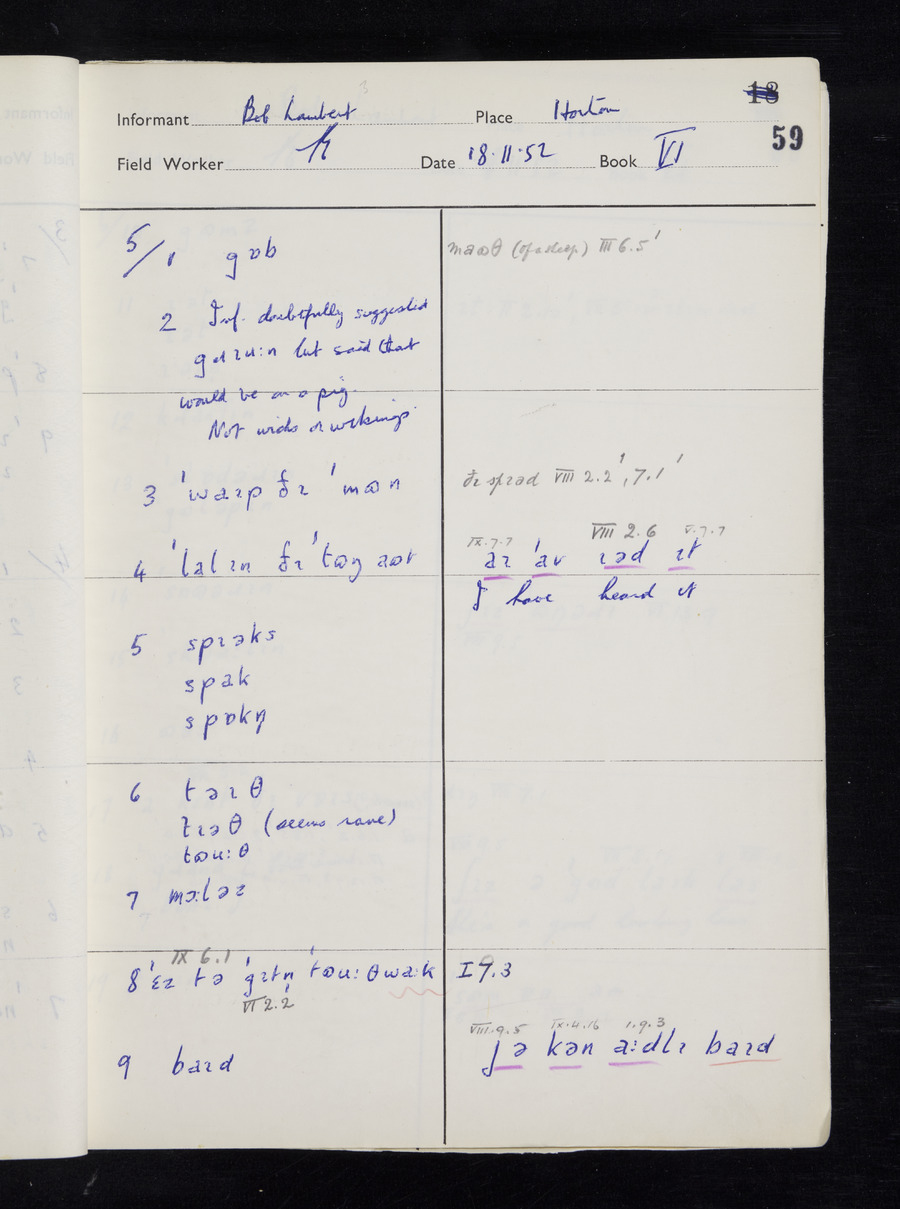 18
59
Informant Bob Lambert Place Horton
Field Worker Date 18.11.52 Book VI
5/1 gɒb
maʊθ (of a sheep) III 6.5'
2 Inf. doubtfully suggested
but said that
would be on a pig.
Not
3 ˈwaɪp ðɪ ˈmaʊn
ðɪ sprɛad VIII 2.2', 7.1'
4 ˈlalɪn ðɪ ˈtɒŋ aʊt
IX.7.7 VIII 2.6 V.7.7
aɪ ˈav ɪəd ɪt
I have heard it
5 spɪəks
spak
spɒkn̩
6 təɪθ
tɪəθ (seems rare)
tɒu:θ
7 mɔ:ləz
IX 6.1
8 ˈɛz tə ˈgɪtn̩ ˈtɒu:θwa:k
VI 2.2'
I 9.3
VIII.9.5 IX.4.16 1.9.3
jə kən a:dlɪ baɪd
9 baɪd